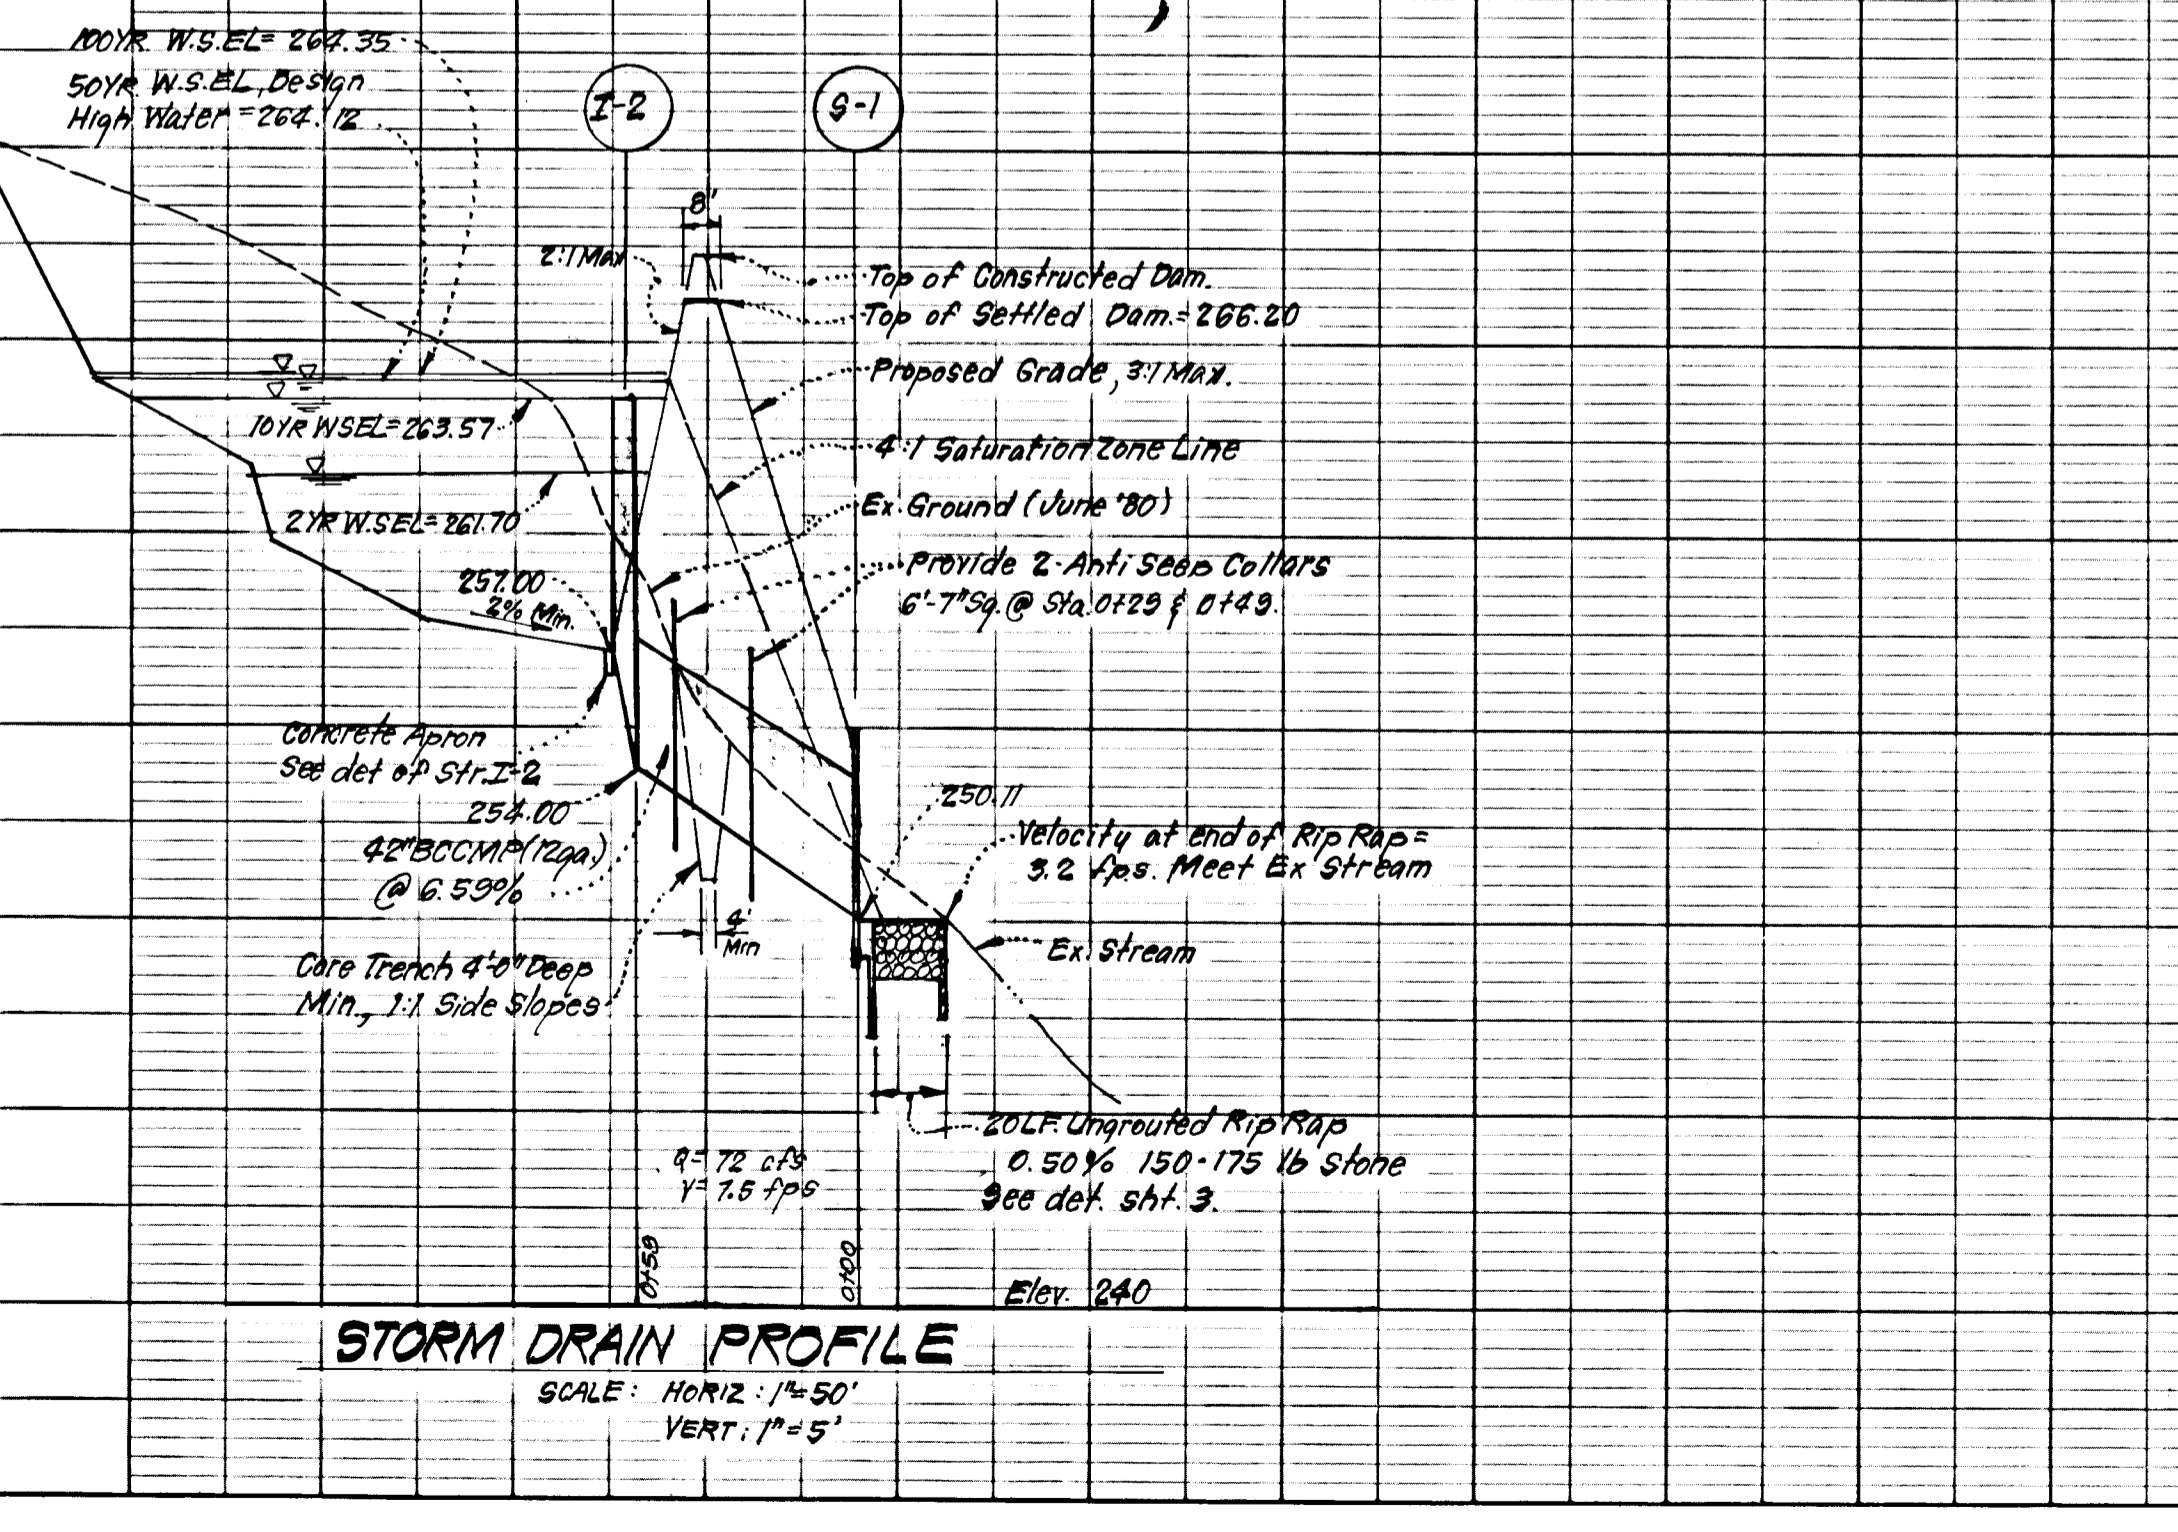 100YR. W.S.EL= 264.35
50YR. W.S.EL, Design
High Water = 264.12
I-2
S-1
8'
2:1 Max
Top of Constructed Dam.
Top of Settled Dam.= 266.20
Proposed Grade, 3:1 Max.
10YR WSEL= 263.57
4:1 Saturation Zone Line
2YR W.SEL= 261.70
Ex. Ground (June '80)
257.00
2% Min.
Provide 2-Anti Seep Collars
6'-7" Sq. @ Sta. 0+29 & 0+49.
Concrete Apron
See det of Str. I-2
254.00
42" BCCMP (12ga.)
@ 6.59%
250.11
Velocity at end of Rip Rap =
3.2 fps. Meet Ex Stream
4'
Min
Core Trench 4'-0" Deep
Min., 1:1 Side Slopes
Ex. Stream
20 L.F. Ungrouted Rip Rap
0.50% 150-175 lb stone
See det. sht. 3.
Q= 72 cfs
V= 7.5 fps
0+59
0+00
Elev. 240
STORM DRAIN PROFILE
SCALE: HORIZ : 1"=50'
VERT : 1"=5'